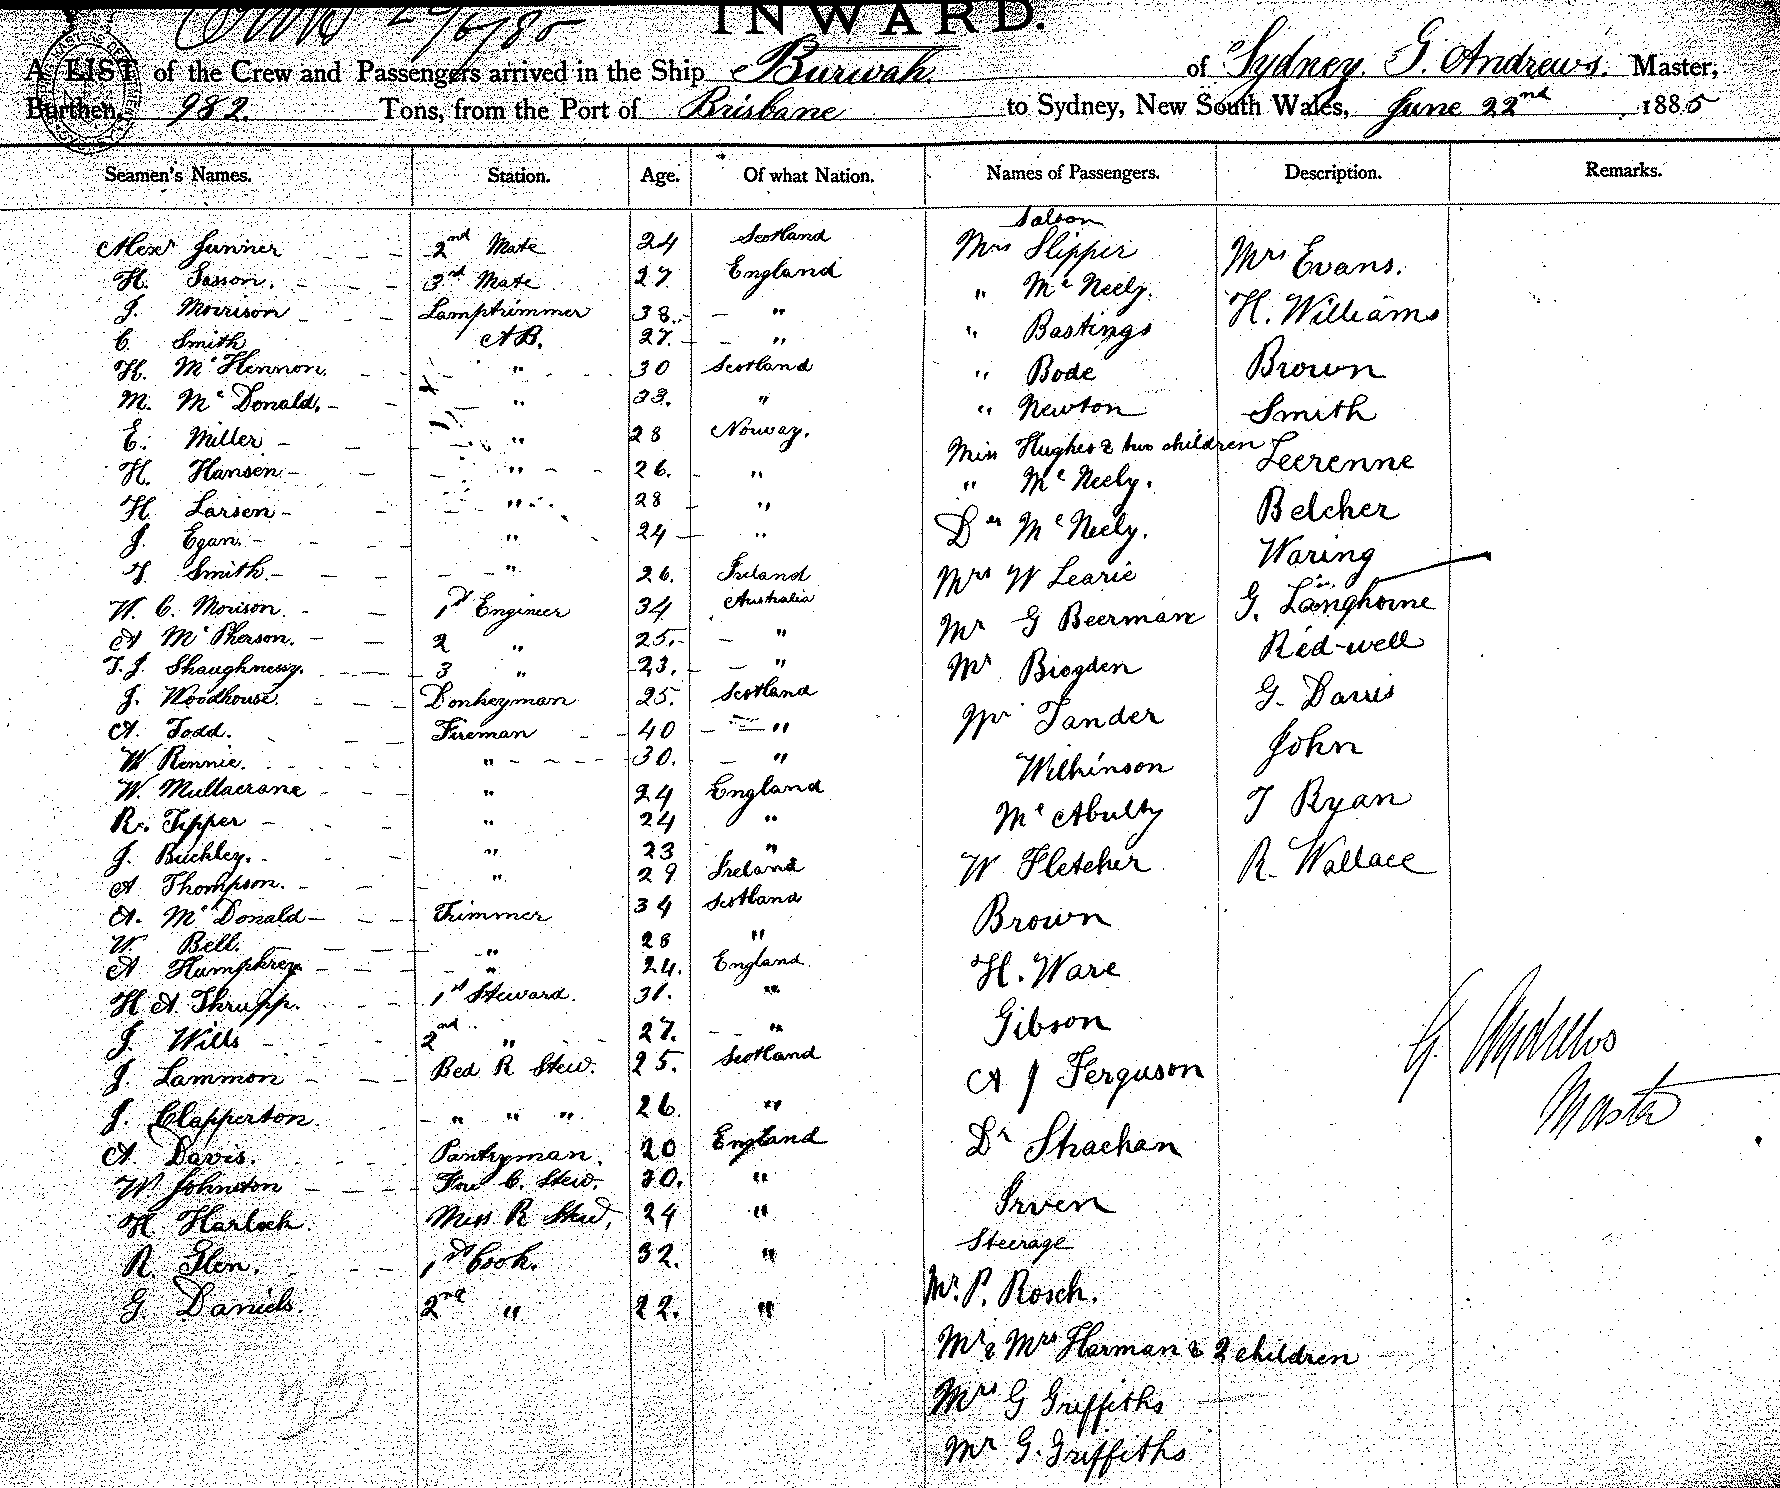 INWARD.
A LIST of the Crew and Passengers arrived in the Ship Burwah of Sydney. G. Andrews. Master,
Burthen, 982. Tons, from the Port of Brisbane to Sydney, New South Wales, June 22nd 1885
Seamen's Names. Station. Age. Of what Nation. Names of Passengers. Description. Remarks.
Saloon
Alexr Gunner 2nd Mate 24 Scotland Mrs Slipper Mrs Evans.
H. Sasson. 3rd Mate 27 England " McNeely. H. Williams
J. Morrison Lamptrimmer 38. " " Bastings
C. Smith AB. 27. " " Bode Brown
H. McKennon. " 30 Scotland " Newton Smith
M. McDonald. " 33. " Miss Hughes & two children Leerenne
E. Miller " 28 Norway. " McNeely. Belcher
H. Hansen " 26. " Dr McNeely. Waring
H. Larsen " 28 " Mrs W Learie G. Langhorne
J. Egan. " 24 " Mr G Beerman Red-well
T. Smith " 26. Ireland Mr Brogden G. Davis
W. C. Morison. 1st Engineer 34 Australia Mr Tander John
A McPherson. 2 " 25. " Wilkinson T Ryan
T. J. Shaughnessy. 3 " 23. " McAbulty R. Wallace
J. Woodhouse. Donkeyman 25. Scotland W Fletcher
A. Todd. Fireman 40 " Brown
W Rennie. " 30. " H. Ware
W. Mullacrane " 24 England Gibson
R. Tipper " 24 " A J Ferguson
J. Buckley. " 23 " Dr Strachan
A Thompson. " 29 Ireland Irven
A. McDonald Trimmer 34 Scotland Steerage
W. Bell. " 28 " Mr. P. Rosch.
A Humphrey " 24. England Mr & Mrs Harman & 2 children
H A Thrupp. 1st Steward. 31. " Mrs G Griffiths
J. Wills 2nd " 27. " Mr G. Griffiths
J. Lammon Bed R Stew. 25. Scotland
J. Clapperton. " " " 26. "
A Davis. Pantryman. 20 England
W Johnston Fore C. Stew. 30. "
H Harlock. Mess R Stew. 24 "
R. Glen. 1st Cook. 32. "
G. Daniels. 2nd " 22. "
G. Andrews
Master